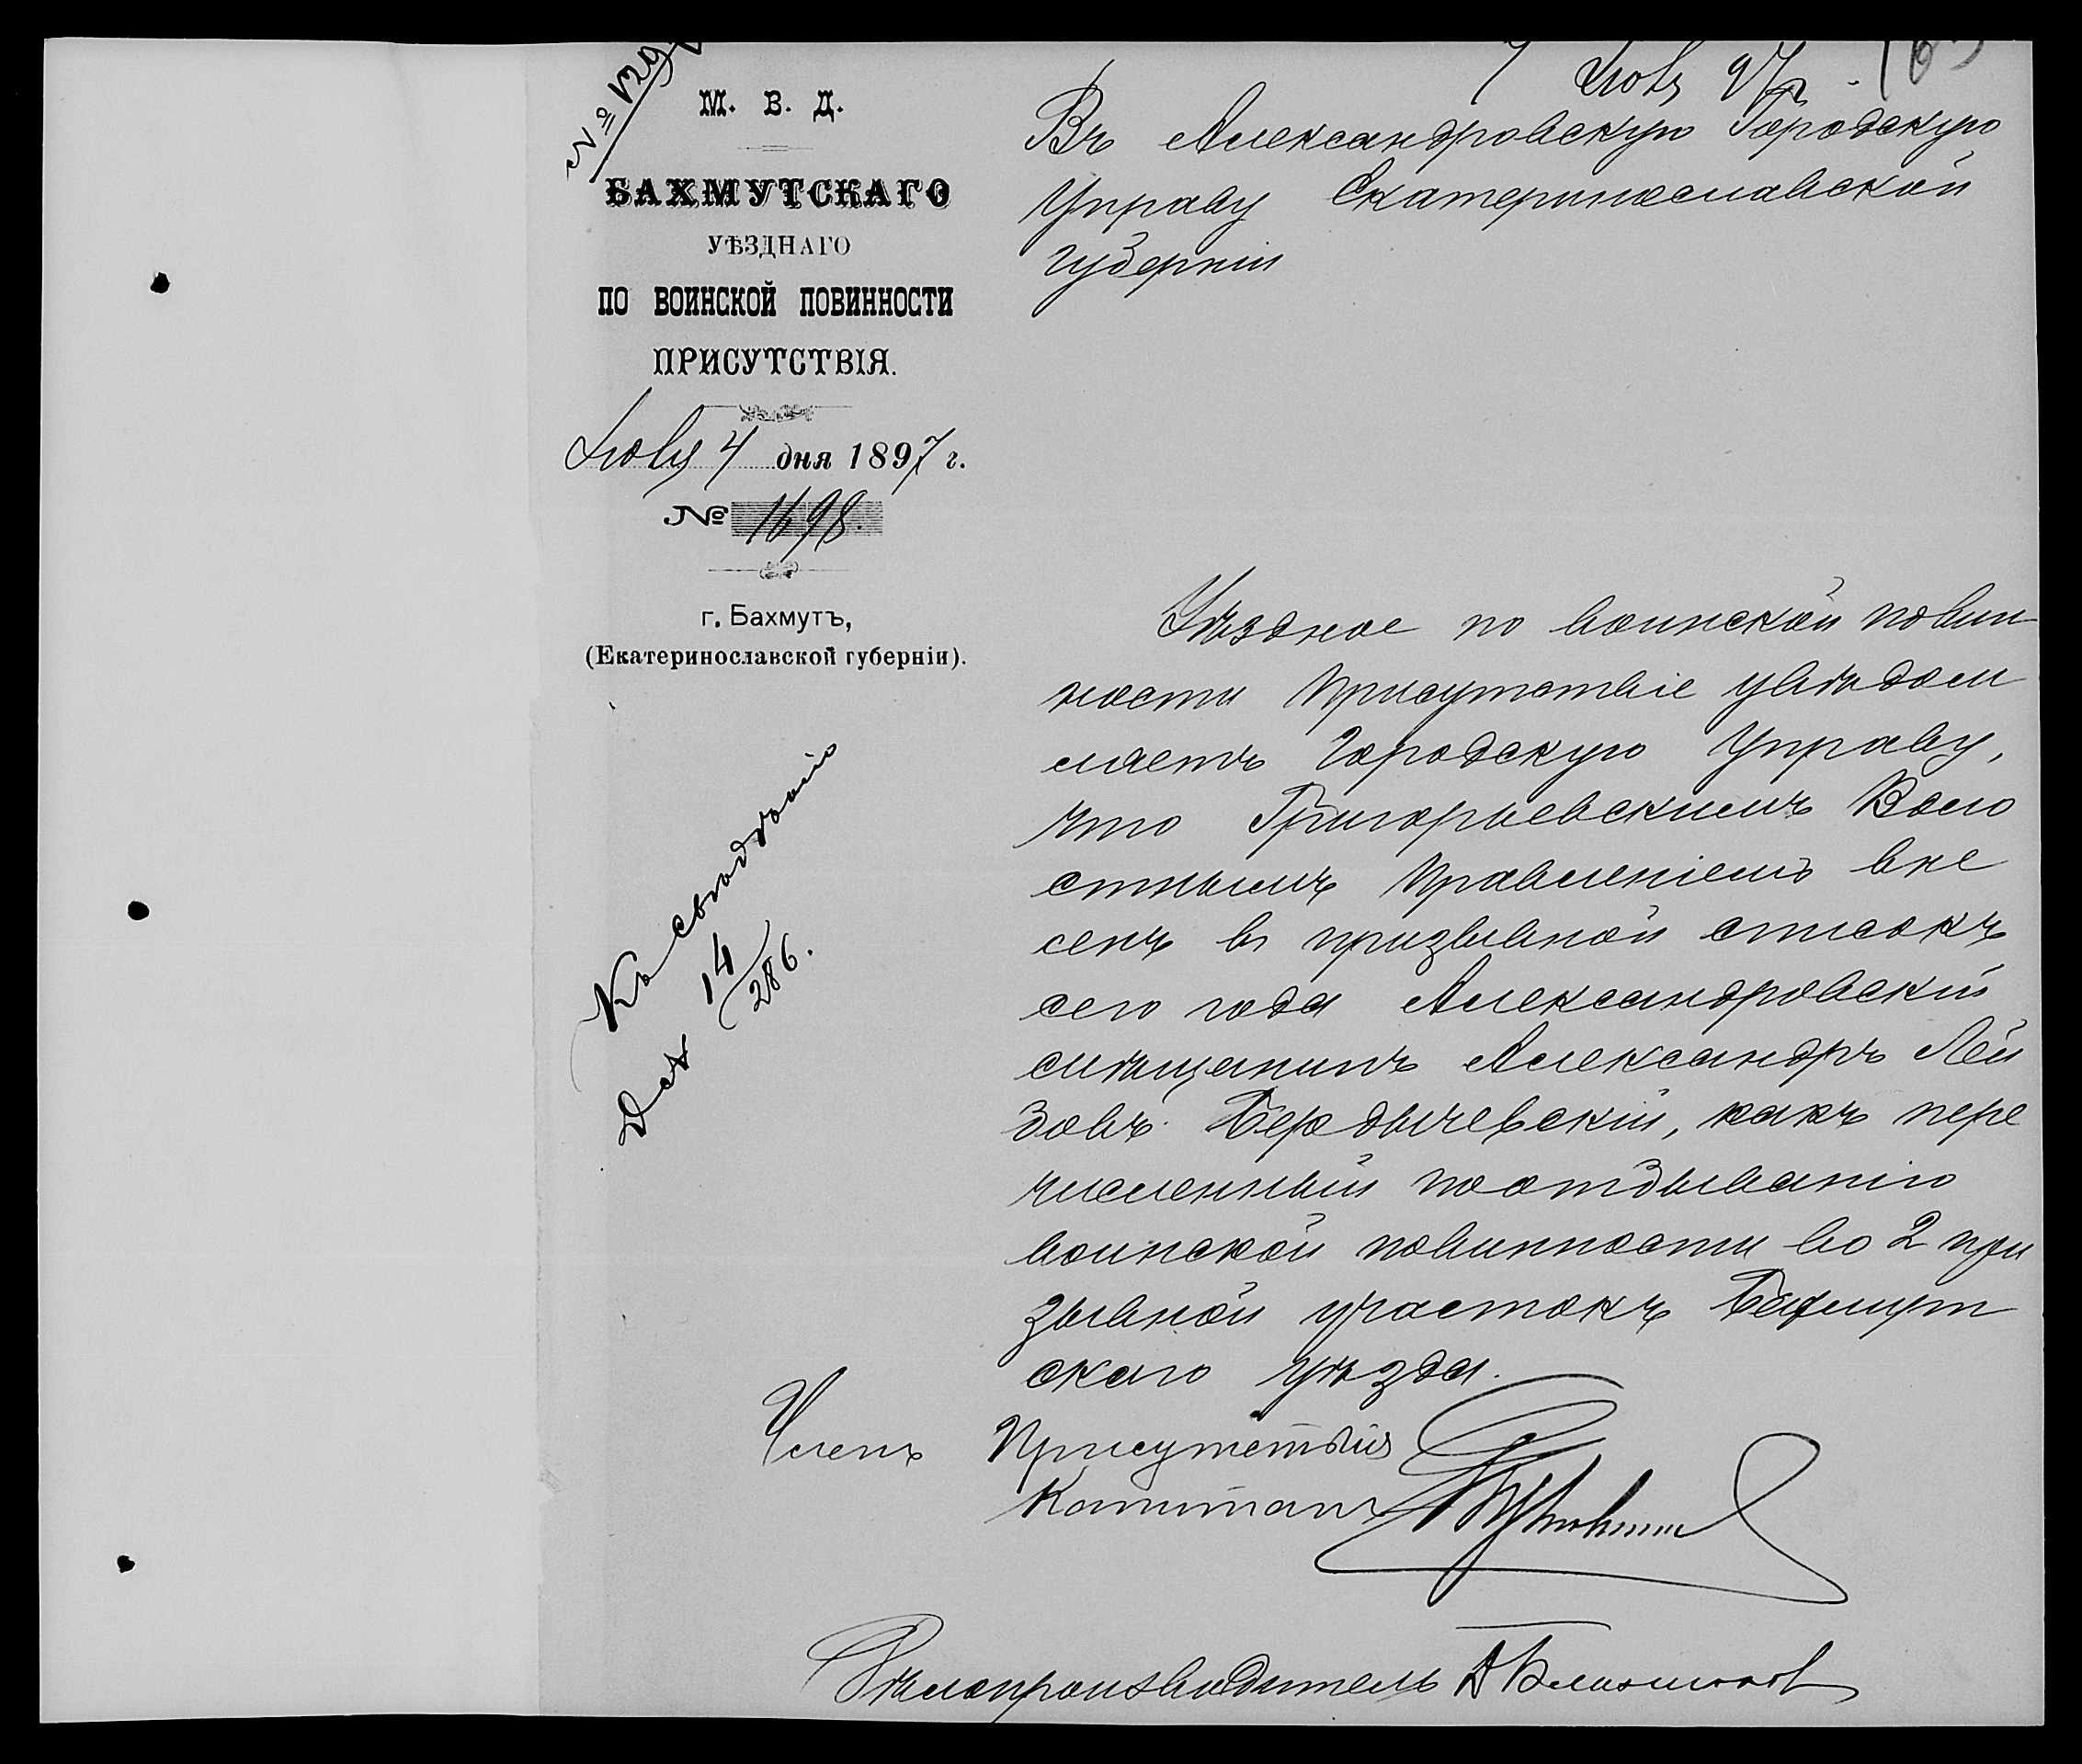 7 Іюля 97 г.
М. В. Д.
БАХМУТСКАГО
УѢЗДНАГО
ПО ВОИНСКОЙ ПОВИННОСТИ
ПРИСУТСТВІЯ.
Іюля 4 дня 1897 г.
№ 1698.
г. Бахмутъ,
(Екатеринославской губерніи).
Къ свѣдѣнію
14
286.
Въ Александровскую Городскую
Управу Екатеринославской
губерніи
Уѣздное по воинской повин
ности Присутствіе увѣдом
ляетъ Городскую Управу,
что Григорьевскимъ Воло
стнымъ Правленіемъ вне
сенъ въ призывной списокъ
сего года Александровскій
мѣщанинъ Александръ Лей
зовъ Бердычевскій, какъ пере
численный по отбыванію
воинской повинности во 2 при
зывной участокъ Бахмут
скаго уѣзда.
Членъ Присутствія
Капитанъ
Дѣлопроизводитель